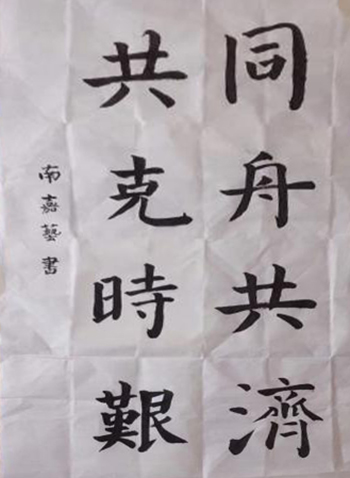 同舟共濟
共克時艱
南嘉藝書